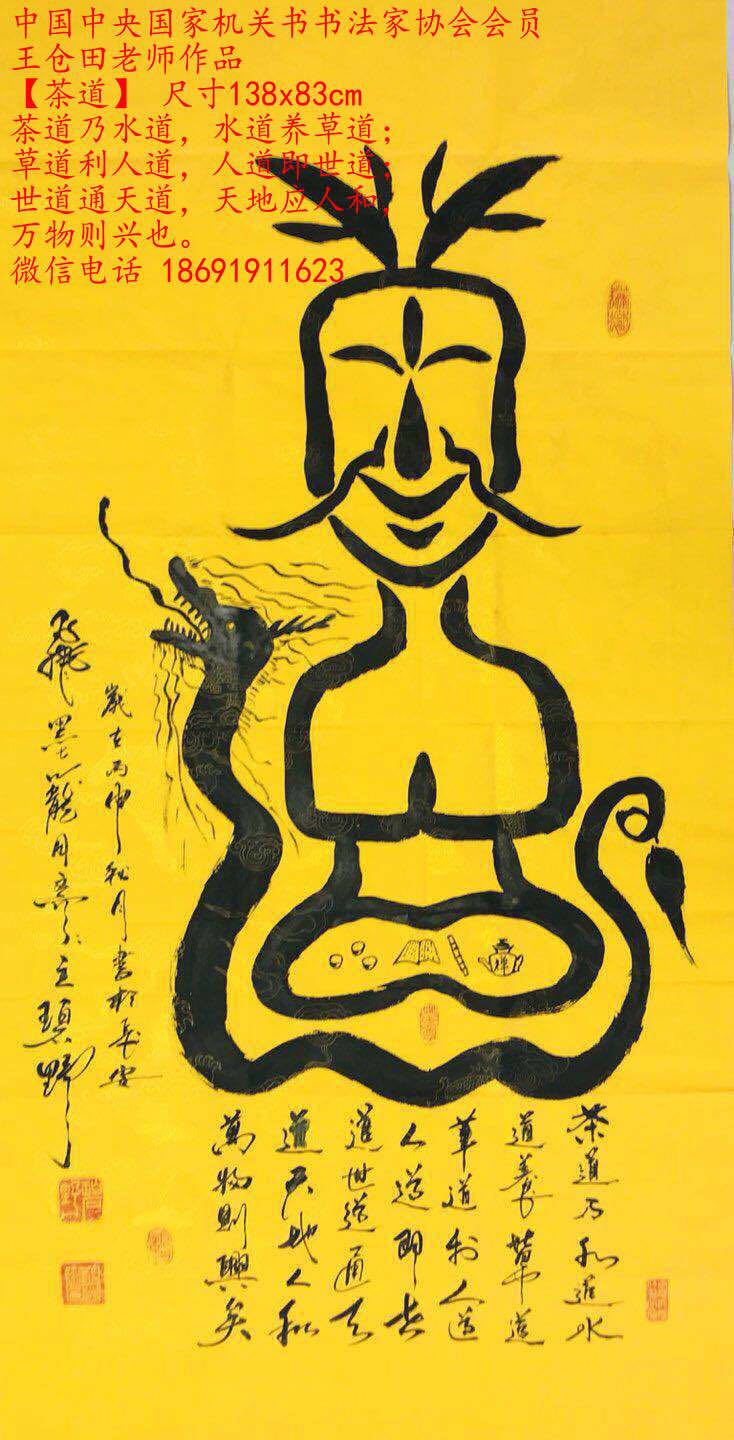 中国中央国家机关书书法家协会会员
王仓田老师作品
【茶道】 尺寸138x83cm
茶道乃水道，水道养草道；
草道利人道，人道即世道；
世道通天道，天地应人和，
万物则兴也。
微信电话 18691911623
茶道乃和道水
道養草道
草道利人道
人道即世
道世道通天
道天地人和
萬物則興矣
歲在丙申秋月書於長安
飛墨籠月齋主碧野